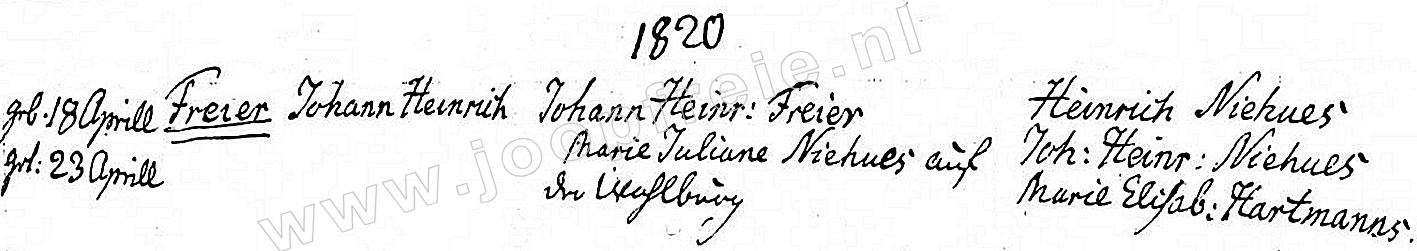 1820
geb. 18 Aprill Freier Johann Heinrich Johann Heinr: Freier Heinrich Niehues
get: 23 Aprill Marie Juliane Niehues auf Joh: Heinr: Niehues
der Wahlburg Marie Elisab: Hartmanns.
www.joopfreie.nl